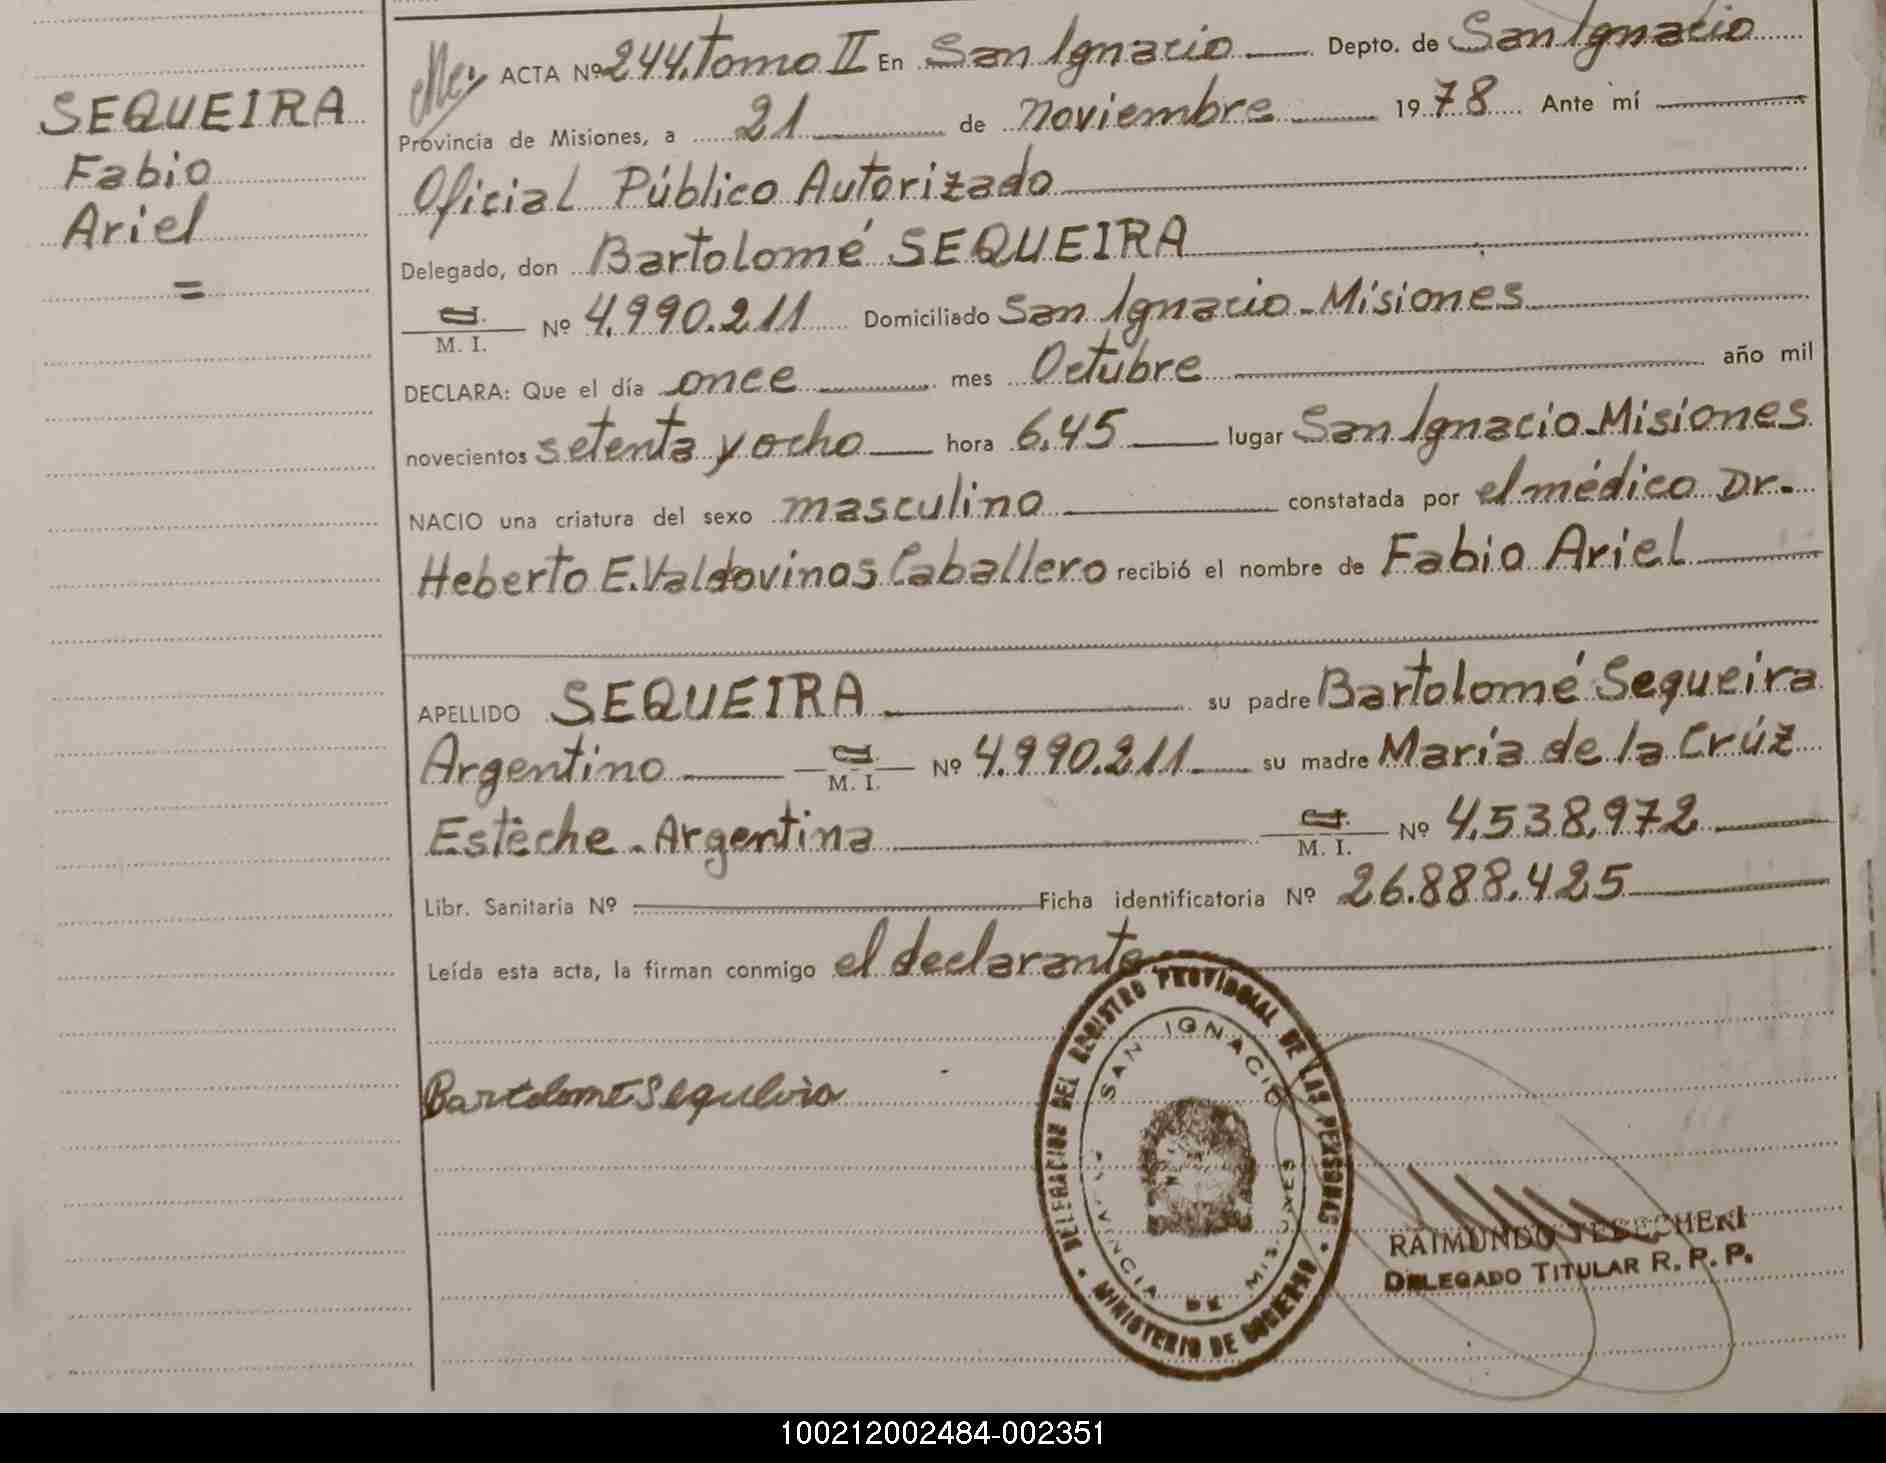 SEQUEIRA
Fabio
Ariel
=
ACTA Nº 244. Tomo II En San Ignacio Depto. de San Ignacio
Provincia de Misiones, a 21 de noviembre 1978 Ante mí
Oficial Público Autorizado
Delegado, don Bartolomé SEQUEIRA
C.I.
M. I. Nº 4.990.211 Domiciliado San Ignacio - Misiones
DECLARA: Que el día once mes Octubre año mil
novecientos setenta y ocho hora 6,45 lugar San Ignacio - Misiones
NACIO una criatura del sexo masculino constatada por el médico Dr.
Heberto E. Valdovinos Caballero recibió el nombre de Fabio Ariel
APELLIDO SEQUEIRA su padre Bartolomé Sequeira
Argentino C.I. M. I. Nº 4.990.211 su madre María de la Crúz
Esteche - Argentina C.I. M. I. Nº 4.538.972
Libr. Sanitaria Nº Ficha identificatoria Nº 26.888.425
Leída esta acta, la firman conmigo el declarante
Bartolome Sequeira
DELEGACION DEL REGISTRO PROVINCIAL DE LAS PERSONAS
SAN IGNACIO
PROVINCIA DE MISIONES
MINISTERIO DE GOBIERNO
RAIMUNDO
DELEGADO TITULAR R. P. P.
100212002484-002351